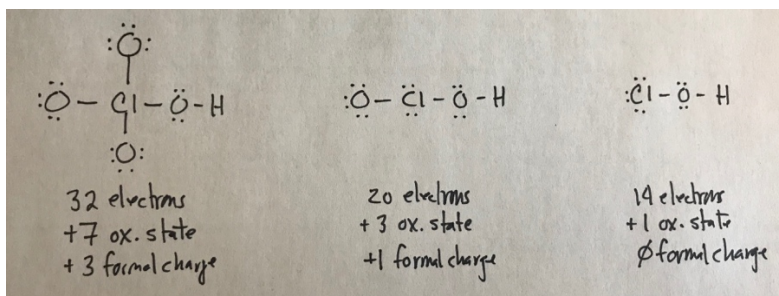 :Ö:
:Ö – Cl – Ö – H
:O:
32 electrons
+7 ox. state
+3 formal charge
:Ö – Cl – Ö – H
20 electrons
+3 ox. state
+1 formal charge
:Cl – Ö – H
14 electrons
+1 ox. state
Ø formal charge